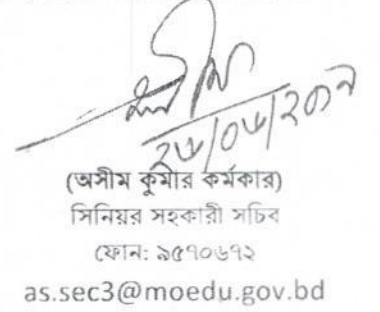 ২৬/০৬/২০১৭
(অসীম কুমার কর্মকার)
সিনিয়র সহকারী সচিব
ফোন: ৯৫৭০৬৭২
as.sec3@moedu.gov.bd